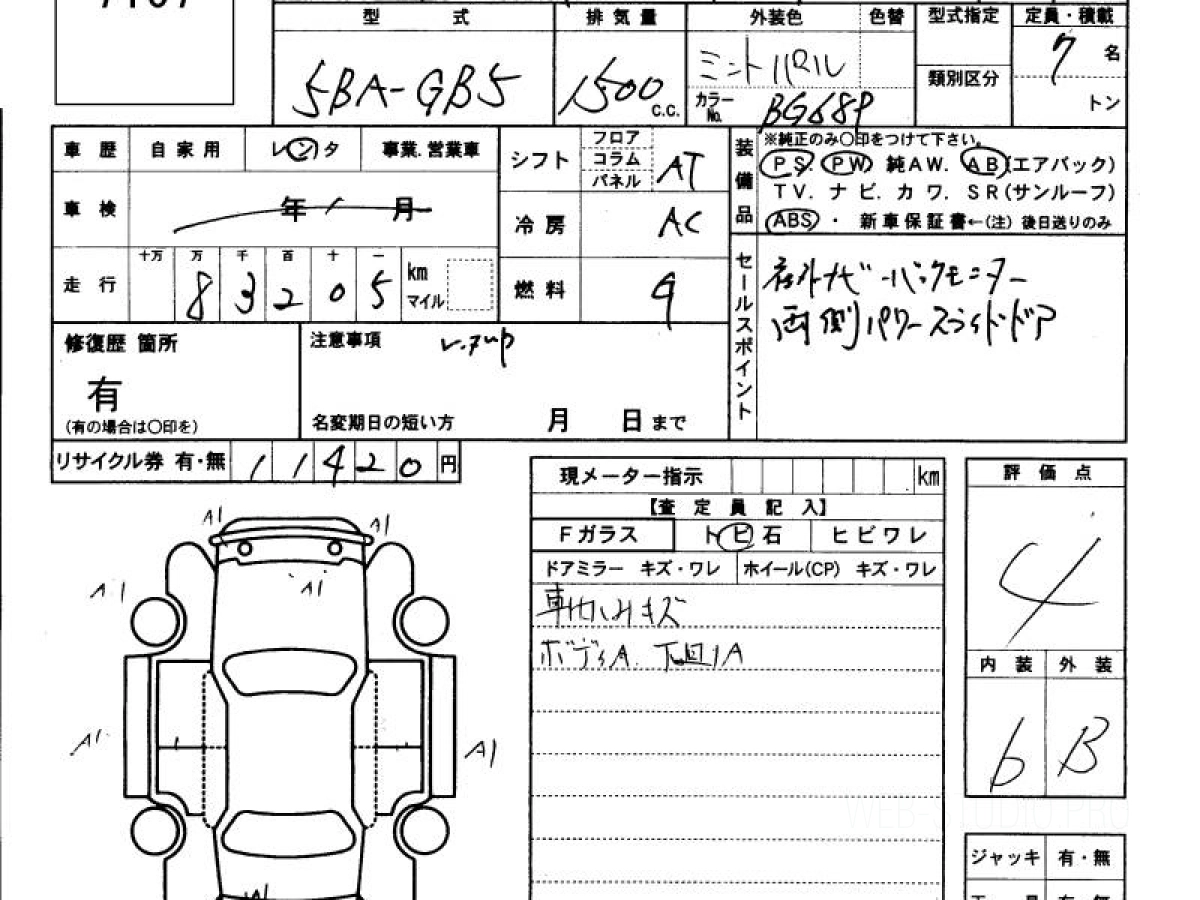 型 式 排気量 外装色 色替 型式指定 定員・積載
5BA-GB5 1500 c.c. ミントパール 7 名
カラーNo. BG68P 類別区分 トン
車歴 自家用 レンタ 事業.営業車
シフト フロア コラム パネル AT
装備品 ※純正のみ○印をつけて下さい。
PS. PW 純AW. AB(エアバック)
TV. ナビ. カワ. SR(サンルーフ)
ABS ・ 新車保証書←(注) 後日送りのみ
車検 年 月
冷房 AC
走行 十万 万 千 百 十 一
8 3 2 0 5 km マイル
燃料 G
セールスポイント
社外ナビ・バックモニター
両側パワースライドドア
修復歴 箇所
有
(有の場合は○印を)
注意事項 レ・アップ
名変期日の短い方 月 日 まで
リサイクル券 有・無 11420 円
現メーター指示 km
【査定員記入】
Fガラス トビ石 ヒビワレ
ドアミラー キズ・ワレ ホイール(CP) キズ・ワレ
車内ハリキズ
ボディA. 下回りA
評価点
4
内装 外装
b B
ジャッキ 有・無
A1 A1
A1 A1
A1 A1
W
WEB-STUDIO.PRO